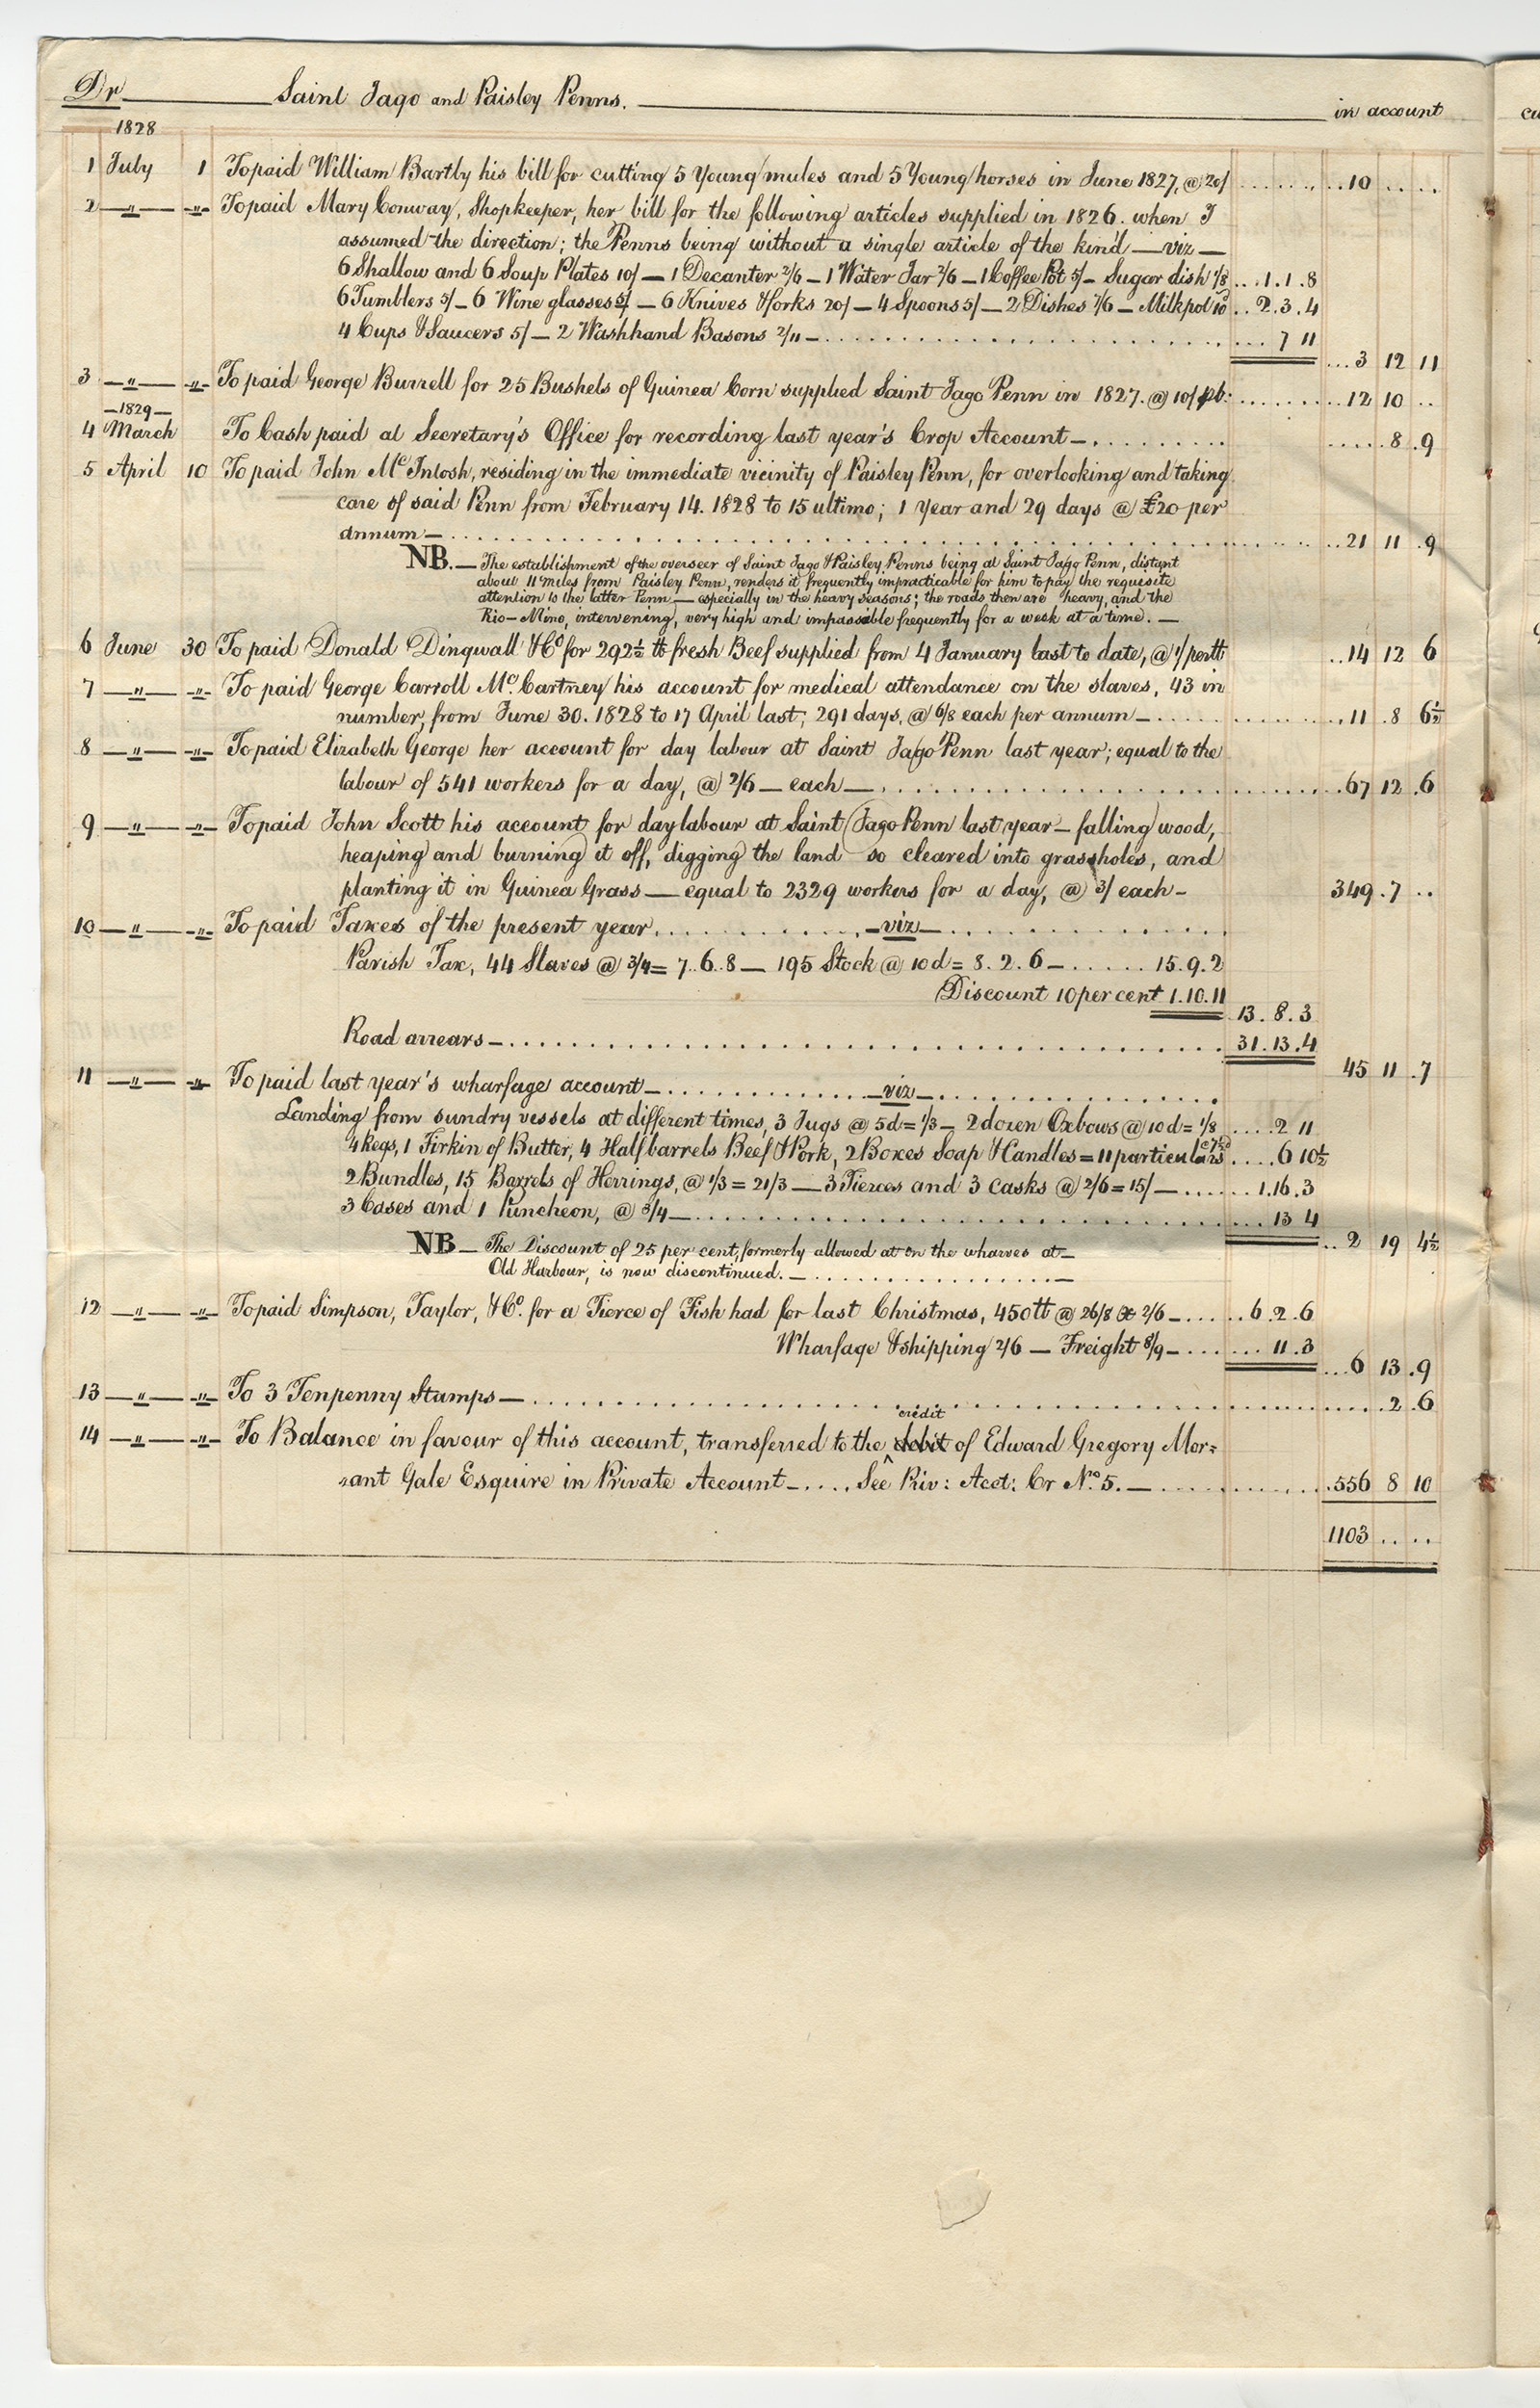 Dr Saint Jago and Paisley Penns. in account
1828
1 July 1 To paid William Bartly his bill for cutting 5 Young mules and 5 Young horses in June 1827, @ 20/ ........ ..10 .. ..
2 —"— -"- To paid Mary Conway, Shopkeeper, her bill for the following articles supplied in 1826. when I
assumed the direction; the Penns being without a single article of the kind — viz —
6 Shallow and 6 Soup Plates 10/ — 1 Decanter 2/6 — 1 Water Jar 2/6 — 1 Coffee Pot 5/ — Sugar dish 1/8 ... 1.1.8
6 Tumblers 5/ — 6 Wine glasses 5/ — 6 Knives & forks 20/ — 4 Spoons 5/ — 2 Dishes 7/6 — Milkpot 10d .. 2.3.4
4 Cups & Saucers 5/ — 2 Washhand Basons 2/11 — ........ 7 11
... 3 12 11
3 —"— -"- To paid George Burrell for 25 Bushels of Guinea Corn supplied Saint Jago Penn in 1827. @ 10/ pb: ........ 12 10 ..
—1829—
4 March To Cash paid at Secretary's Office for recording last year's Crop Account — ........ ..... 8 .9
5 April 10 To paid John Mc Intosh, residing in the immediate vicinity of Paisley Penn, for overlooking and taking
care of said Penn from February 14. 1828 to 15 ultimo; 1 Year and 29 days @ £20 per
annum — ........ ..21 11 .9
NB. — The establishment of the overseer of Saint Jago & Paisley Penns being at Saint Jago Penn, distant
about 11 miles from Paisley Penn, renders it frequently impracticable for him to pay the requisite
attention to the latter Penn — especially in the heavy seasons; the roads then are heavy, and the
Rio-Mino, intervening, very high and impassable frequently for a week at a time. —
6 June 30 To paid Donald Dingwall & Co for 292½ lb fresh Beef supplied from 4 January last to date, @ 1/ per lb ..14 12 6
7 —"— -"- To paid George Carroll Mc. Cartney his account for medical attendance on the slaves, 43 in
number, from June 30. 1828 to 17 April last; 291 days, @ 6/8 each per annum — ........ 11 .8 6½
8 —"— -"- To paid Elizabeth George her account for day labour at Saint Jago Penn last year; equal to the
labour of 541 workers for a day, @ 2/6 — each — ........ 67 12 .6
9 —"— -"- To paid John Scott his account for day labour at Saint Jago Penn last year — falling wood,
heaping and burning it off, digging the land so cleared into grassholes, and
planting it in Guinea Grass — equal to 2329 workers for a day, @ 3/ each — 349 .7 ..
10 —"— -"- To paid Taxes of the present year, ........ — viz — ........
Parish Tax, 44 Slaves @ 3/4 = 7..6..8 — 195 Stock @ 10d = 8.2.6 — ...... 15.9.2
Discount 10 per cent 1.10.11
13.8.3
Road arrears — ........ 31.13.4
45 11 .7
11 —"— -"- To paid last year's wharfage account — ........ — viz — ........
Landing from sundry vessels at different times, 3 Jugs @ 5d = 1/3 — 2 dozen Oxbows @ 10d = 1/8 ..... 2 11
4 Kegs, 1 Firkin of Butter, 4 Half barrels Beef & Pork, 2 Boxes Soap & Candles = 11 particulars @ 7½d ..... 6 10½
2 Bundles, 15 Barrels of Herrings, @ 1/3 = 21/3 — 3 Tierces and 3 casks @ 2/6 = 15/ — ...... 1.16.3
3 Cases and 1 Puncheon, @ 3/4 — ........ 13 4
.. 2 19 4½
NB — The Discount of 25 per cent, formerly allowed at on the wharves at —
Old Harbour, is now discontinued. — ........ —
12 —"— -"- To paid Simpson, Taylor, & Co. for a Tierce of Fish had for last Christmas, 450 lb @ 26/8 & 2/6 — ..... 6.2.6
Wharfage & shipping 2/6 — Freight 8/9 — ...... 11.3
... 6 13 .9
13 —"— -"- To 3 Tenpenny Stamps — ........ 2 .6
credit
14 —"— -"- To Balance in favour of this account, transferred to the debit of Edward Gregory Mor=
rant Gale Esquire in Private Account — .... See Priv: Acct: Cr No. 5. — ........ 556 8 10
1103 .. ..